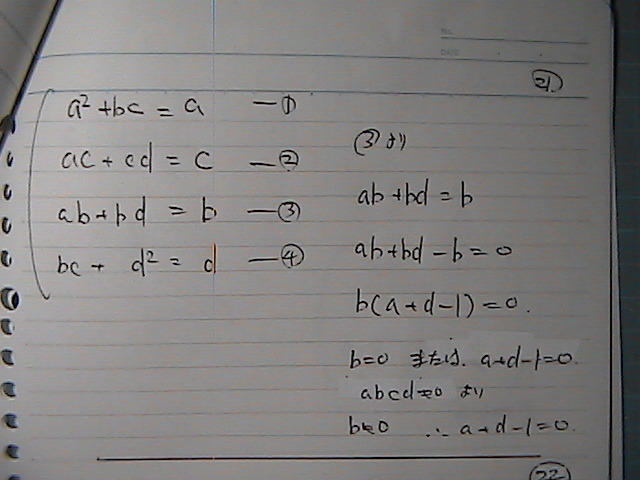 No.
DATE
㉑
a² + bc = a —①
ac + cd = c —②
ab + bd = b —③
bc + d² = d —④
③より
ab + bd = b
ab + bd - b = 0
b(a + d - 1) = 0.
b=0 または、a+d-1=0.
abcd≠0 より
b≠0 ∴ a+d-1=0.
㉒